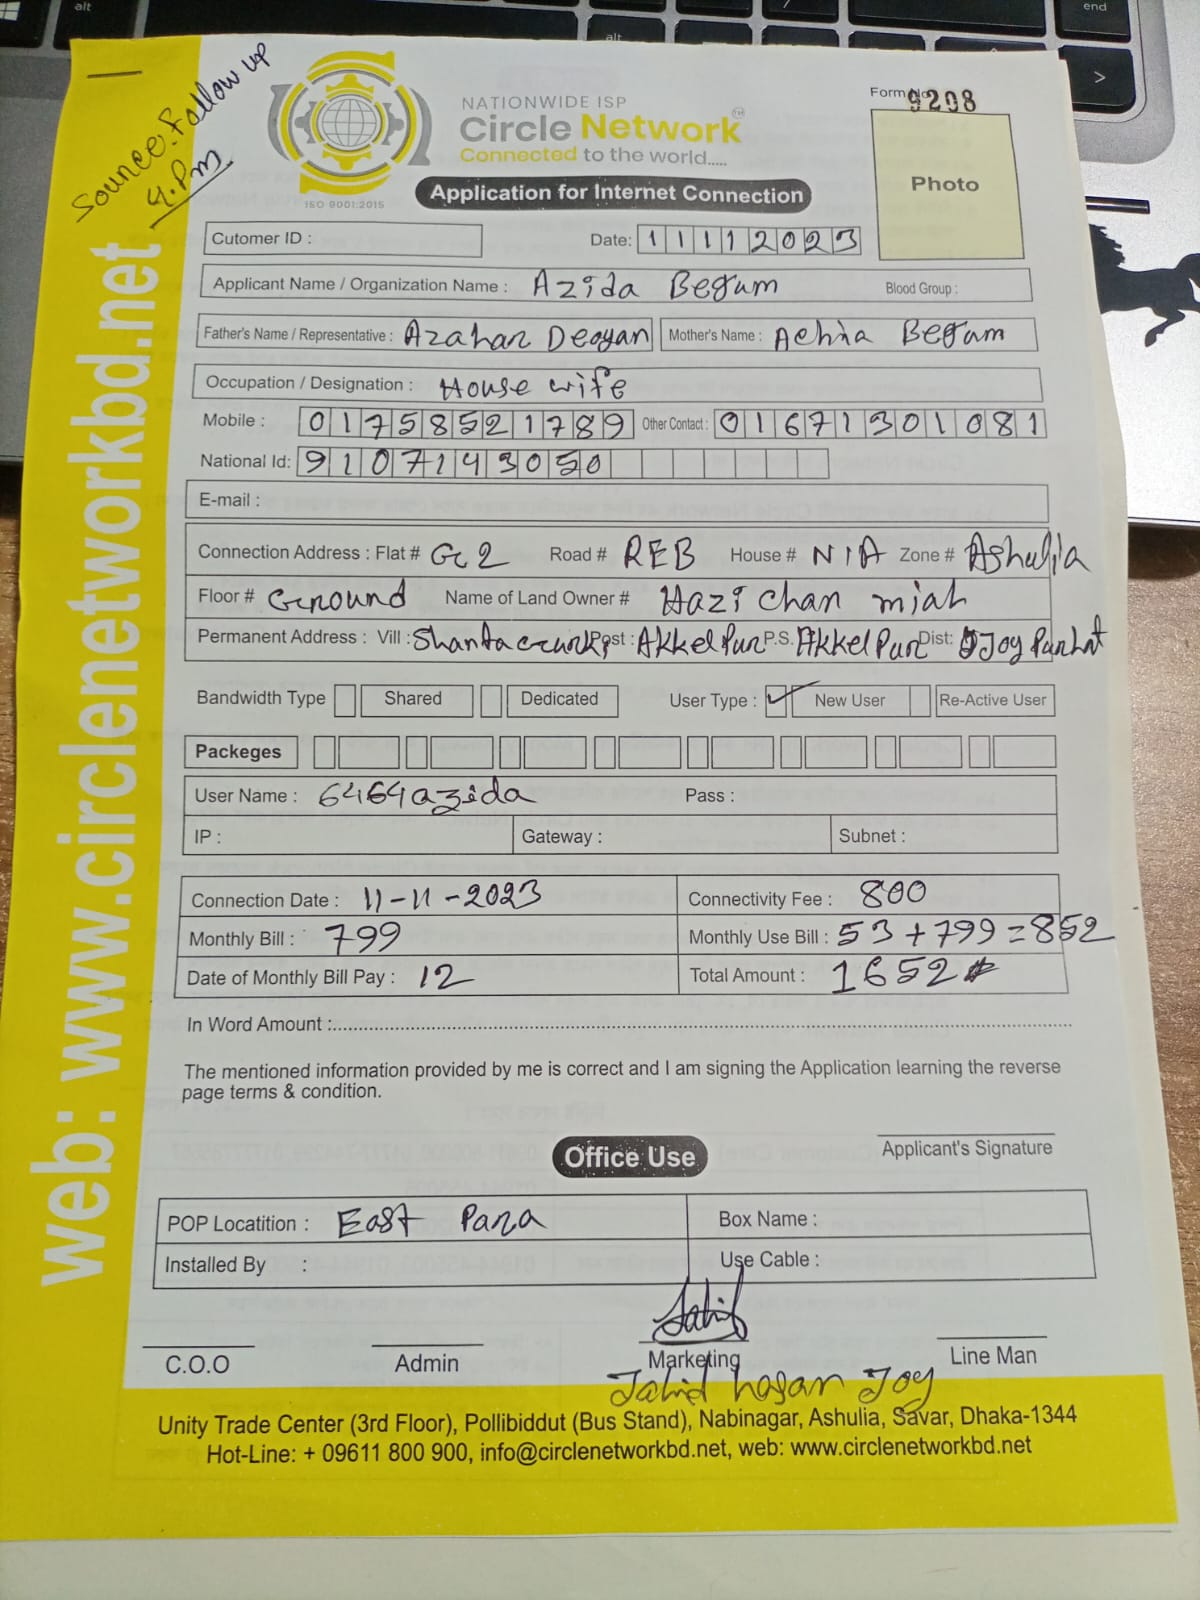 Source: Follow up
4.Pm
NATIONWIDE ISP
Circle Network TM
Connected to the world.....
ISO 9001:2015
Form No 9208
Photo
Application for Internet Connection
Cutomer ID :
Date: 11112023
Applicant Name / Organization Name : Azida Begum Blood Group :
Father's Name / Representative : Azahar Deoyan Mother's Name : Begum
Occupation / Designation : House wife
Mobile : 01758521789 Other Contact : 01671301081
National Id: 9107143050
E-mail :
Connection Address : Flat # Gc2 Road # REB House # N/A Zone # Ashulia
Floor # Ground Name of Land Owner # Hazi chan miah
Permanent Address : Vill : Post : AkkelPur P.S. AkkelPur Dist: Joy Purhat
Bandwidth Type Shared Dedicated User Type : ✓ New User Re-Active User
Packeges
User Name : 6464azida Pass :
IP : Gateway : Subnet :
Connection Date : 11-11-2023 Connectivity Fee : 800
Monthly Bill : 799 Monthly Use Bill : 53+799=852
Date of Monthly Bill Pay : 12 Total Amount : 1652
In Word Amount :
The mentioned information provided by me is correct and I am signing the Application learning the reverse
page terms & condition.
Applicant's Signature
Office Use
POP Locatition : East Para Box Name :
Installed By : Use Cable :
Jahid
C.O.O Admin Marketing Line Man
Jahid hasan Joy
Unity Trade Center (3rd Floor), Pollibiddut (Bus Stand), Nabinagar, Ashulia, Savar, Dhaka-1344
Hot-Line: + 09611 800 900, info@circlenetworkbd.net, web: www.circlenetworkbd.net
web: www.circlenetworkbd.net
alt
alt
end